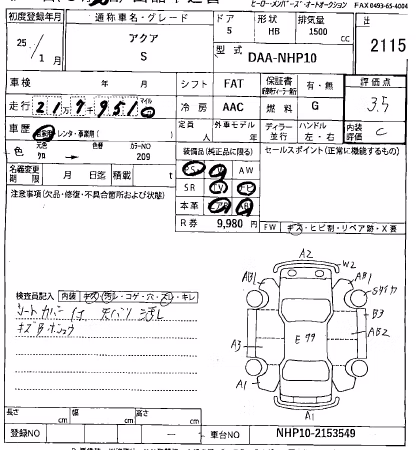 ヒーロー・メンバーズ・オートオークション FAX 0493-65-4004
初度登録年月 通称車名・グレード ドア 形状 排気量
25年/1月 アクア S 5 HB 1500 cc
型式 DAA-NHP10
2115
車検 シフト FAT 保証書 有・無 評価点
走行 21万7千951 マイル 冷房 AAC 燃料 G 3.5
車歴 自家用・レンタ・事業用( ) 定員 人 外車モデル 年 ディーラー 並行 ハンドル 左・右 内装評価 C
色 元色 クロ → 色替 カラーNO 209
装備品(純正品に限る) セールスポイント(正常に機能するもの)
PS PW AW
名義変更期限 月 日迄 積載 t
SR TV ナビ
注意事項(欠品・修復・不具合箇所および状態)
本革 AB
R券 9,980 円
FW キズ・ヒビ割・リペア跡・X要
検査員記入 内装 キズ・汚レ・コゲ・穴・スレ・キレ
シートカバー付 天バリ汚レ
A2
W2
AB1
AB1
Sタイヤ
B3
AB2
E99
A3
A1
A1
A1
長さ cm 幅 cm 高さ cm
登録NO ― 車台NO NHP10-2153549